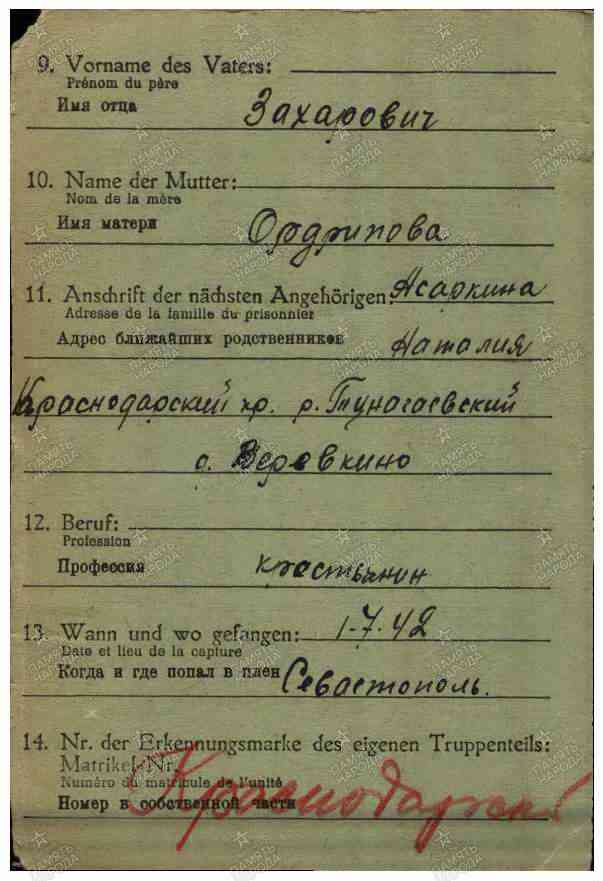 9. Vorname des Vaters:
Prénom du père
Имя отца
Захарович
10. Name der Mutter:
Nom de la mère
Имя матери
Ордрипова
11. Anschrift der nächsten Angehörigen: Асаркина
Adresse de la famille du prisonnier
Адрес ближайших родственников Наталия
Краснодарский кр. р.
с. Веревкино
12. Beruf:
Profession
Профессия
крестьянин
13. Wann und wo gefangen: 1-7.42
Date et lieu de la capture
Когда и где попал в плен Севастополь.
14. Nr. der Erkennungsmarke des eigenen Truppenteils:
Matrikel-Nr.
Numéro du matricule de l'unité
Номер в собственной части
Краснодарский
ПАМЯТЬ НАРОДА